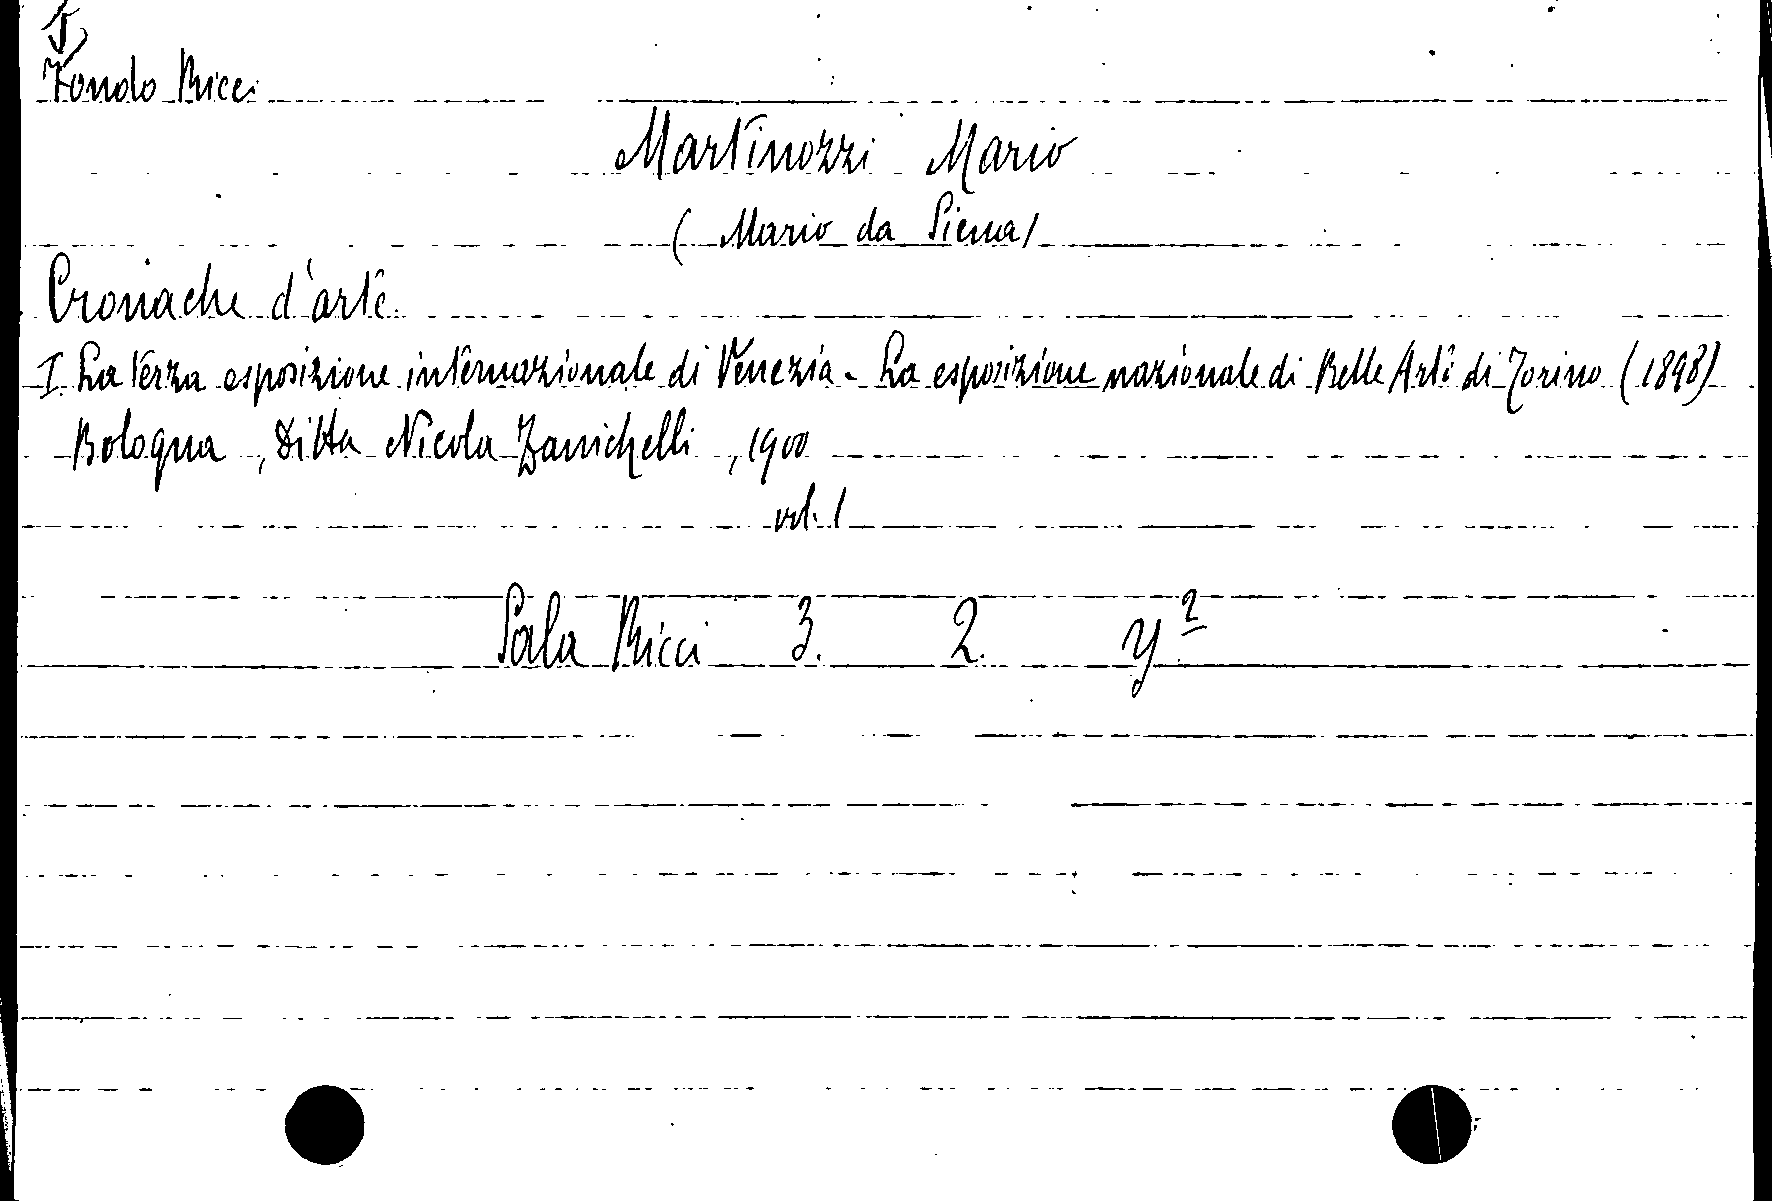 Fondo Ricci
Martinozzi Mario
( Mario da Siena)
Cronache d'arte.
I. La terza esposizione internazionale di Venezia - La esposizione nazionale di Belle Arti di Torino (1898)
Bologna, Ditta Nicola Zanichelli, 1900
vol. 1
Sala Ricci 3. 2. y²